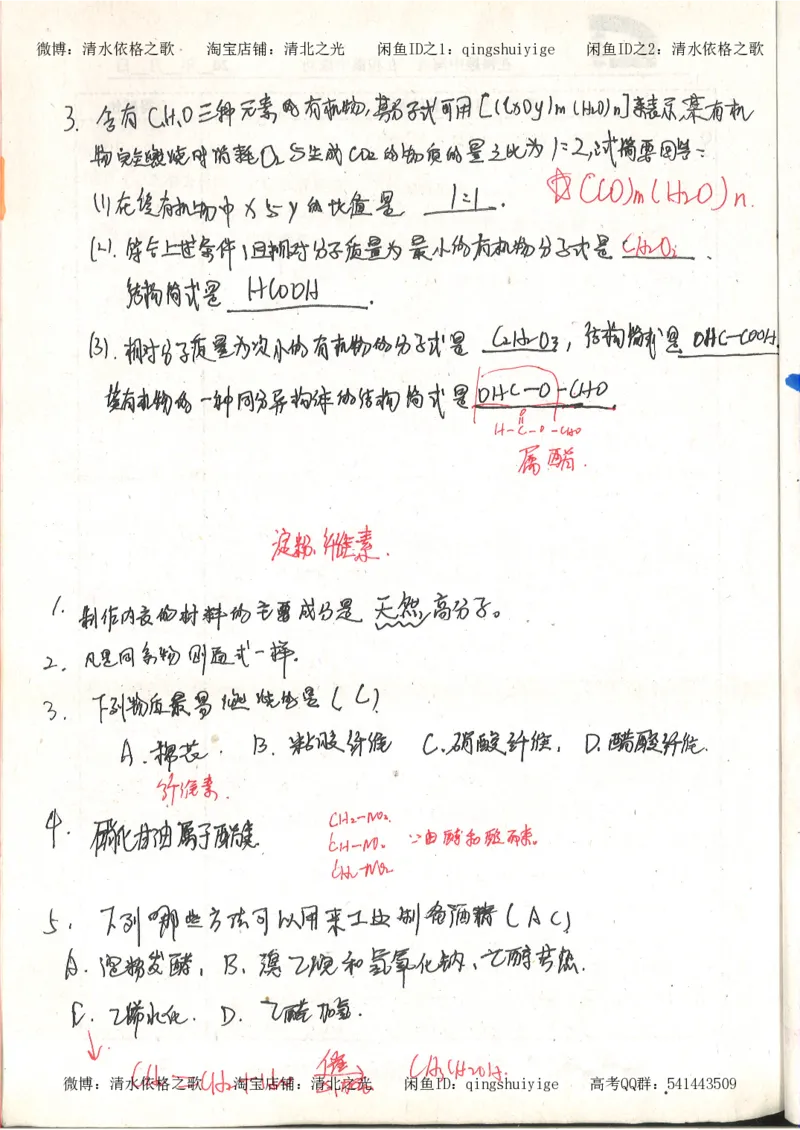 微博：清水依格之歌 淘宝店铺：清北之光 闲鱼ID之1：qingshuiyige 闲鱼ID之2：清水依格之歌
3. 含有C,H,O三种元素的有机物,其分子式可用[(CxOy)m(H2O)n]来表示,某有机
物完全燃烧时消耗O2与生成CO2的物质的量之比为1:2,试摘要回答:
(1)在该有机物中x与y的比值是 1:1 . ☆(CO)m(H2O)n.
(2).符合上述条件,且相对分子质量为最小的有机物分子式是 CH2O2 .
结构简式是 HCOOH .
(3).相对分子质量为次小的有机物的分子式是 C2H2O3 , 结构简式是 OHC-COOH.
该有机物的一种同分异构体的结构简式是 OHC-O-CHO
H-C-O-CHO
O
属酯.
淀粉、纤维素.
1. 制作内衣的材料的主要成分是天然高分子。
2. 凡是同系物则通式一样.
3. 下列物质最易燃烧的是(C)
A.棉花. B.粘胶纤维 C.硝酸纤维. D.醋酸纤维.
纤维素.
4. 硝化甘油属于酯类.
CH2-NO2.
CH-NO2 ∵由醇和酸而来。
CH2-NO2
5. 下列哪些方法可以用来工业制备酒精(AC)
A.淀粉发酵, B.溴乙烷和氢氧化钠、乙醇共热.
C. 乙烯水化. D. 乙醛加氢.
CH2=CH2+H2O CH3CH2OH.
微博：清水依格之歌 淘宝店铺：清北之光 闲鱼ID：qingshuiyige 高考QQ群：541443509